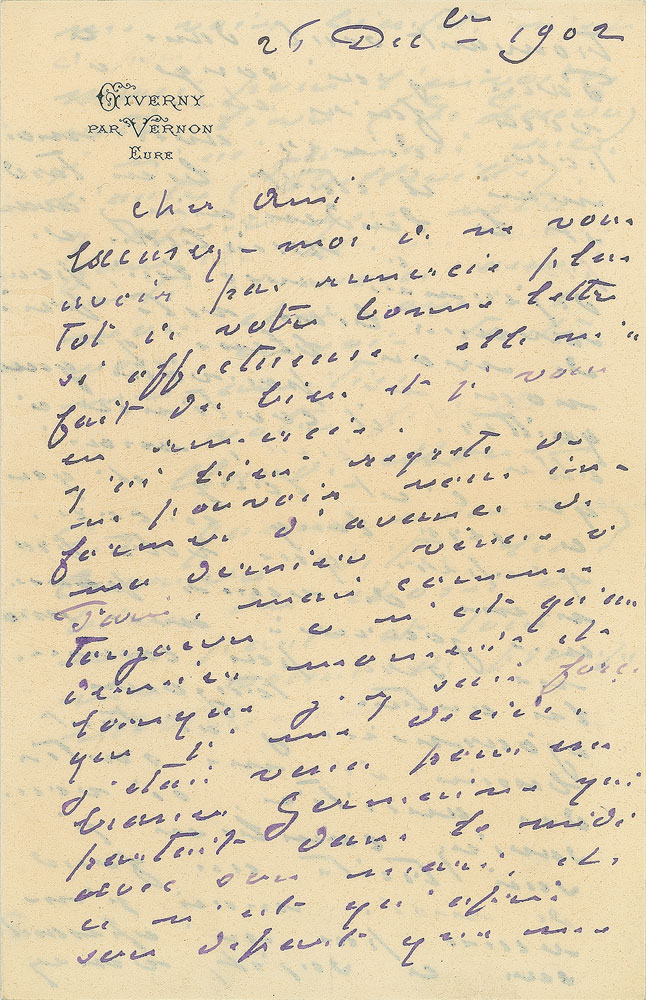 26 Décbre 1902
GIVERNY
PAR VERNON
EURE
Cher Ami
Excusez-moi de ne vous
avoir pas remercié plus
tôt de votre bonne lettre
si affectueuse. elle m'a
fait du bien et je vous
en remercie.
J'ai bien regretté de
ne pouvoir vous in-
former d'avance de
ma dernière venue à
Paris, mais comme
toujours ce n'est qu'au
dernier moment et
lorsque j'y suis forcé
que je me décide.
J'étais venu pour ma
Germaine qui
partait dans le midi
avec son mari, et
ce n'est qu'après
son départ que me